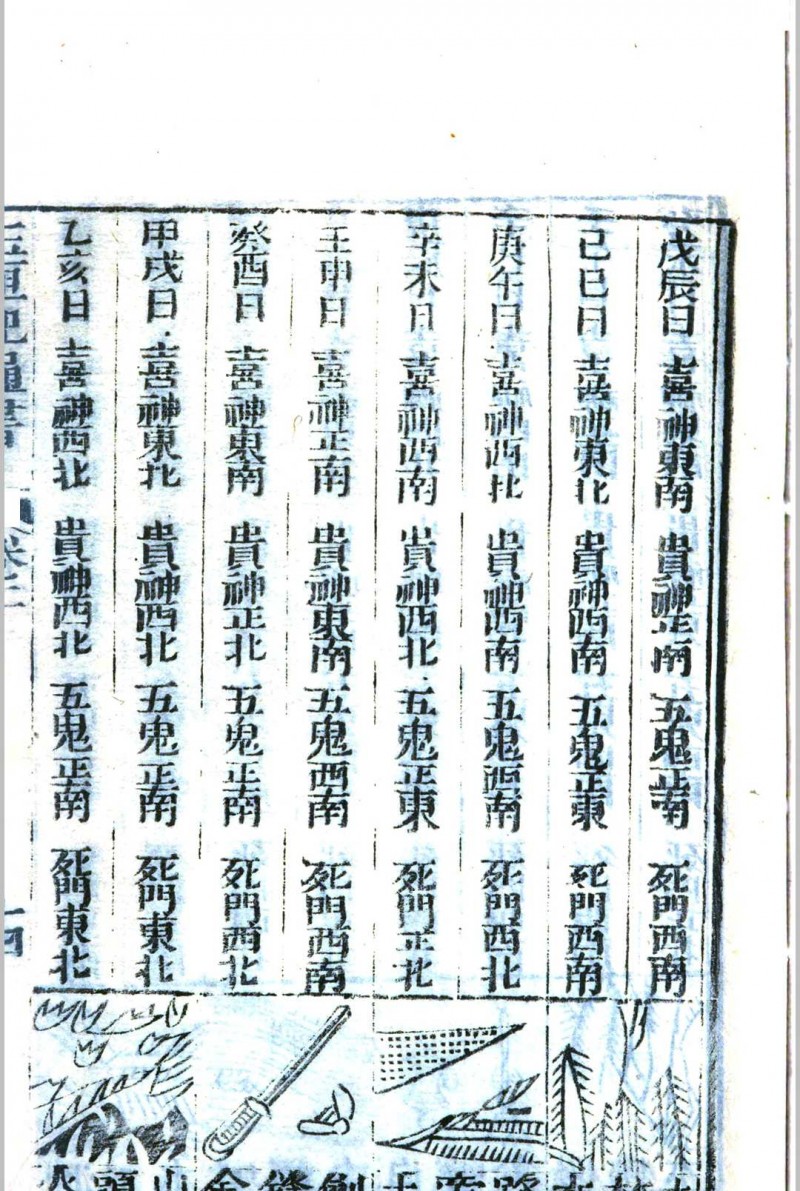 戊辰日 喜神東南 貴神正南 五鬼正南 死門西南
己巳日 喜神東北 貴神西南 五鬼正東 死門西南
庚午日 喜神西北 貴神西南 五鬼西南 死門西北
辛未日 喜神西南 貴神西北 五鬼正東 死門正北
壬申日 喜神正南 貴神東南 五鬼西南 死門西南
癸酉日 喜神東南 貴神正北 五鬼正南 死門西北
甲戌日 喜神東北 貴神西北 五鬼正南 死門東北
乙亥日 喜神西北 貴神西北 五鬼正南 死門東北
路旁土
劍鋒金
山頭火